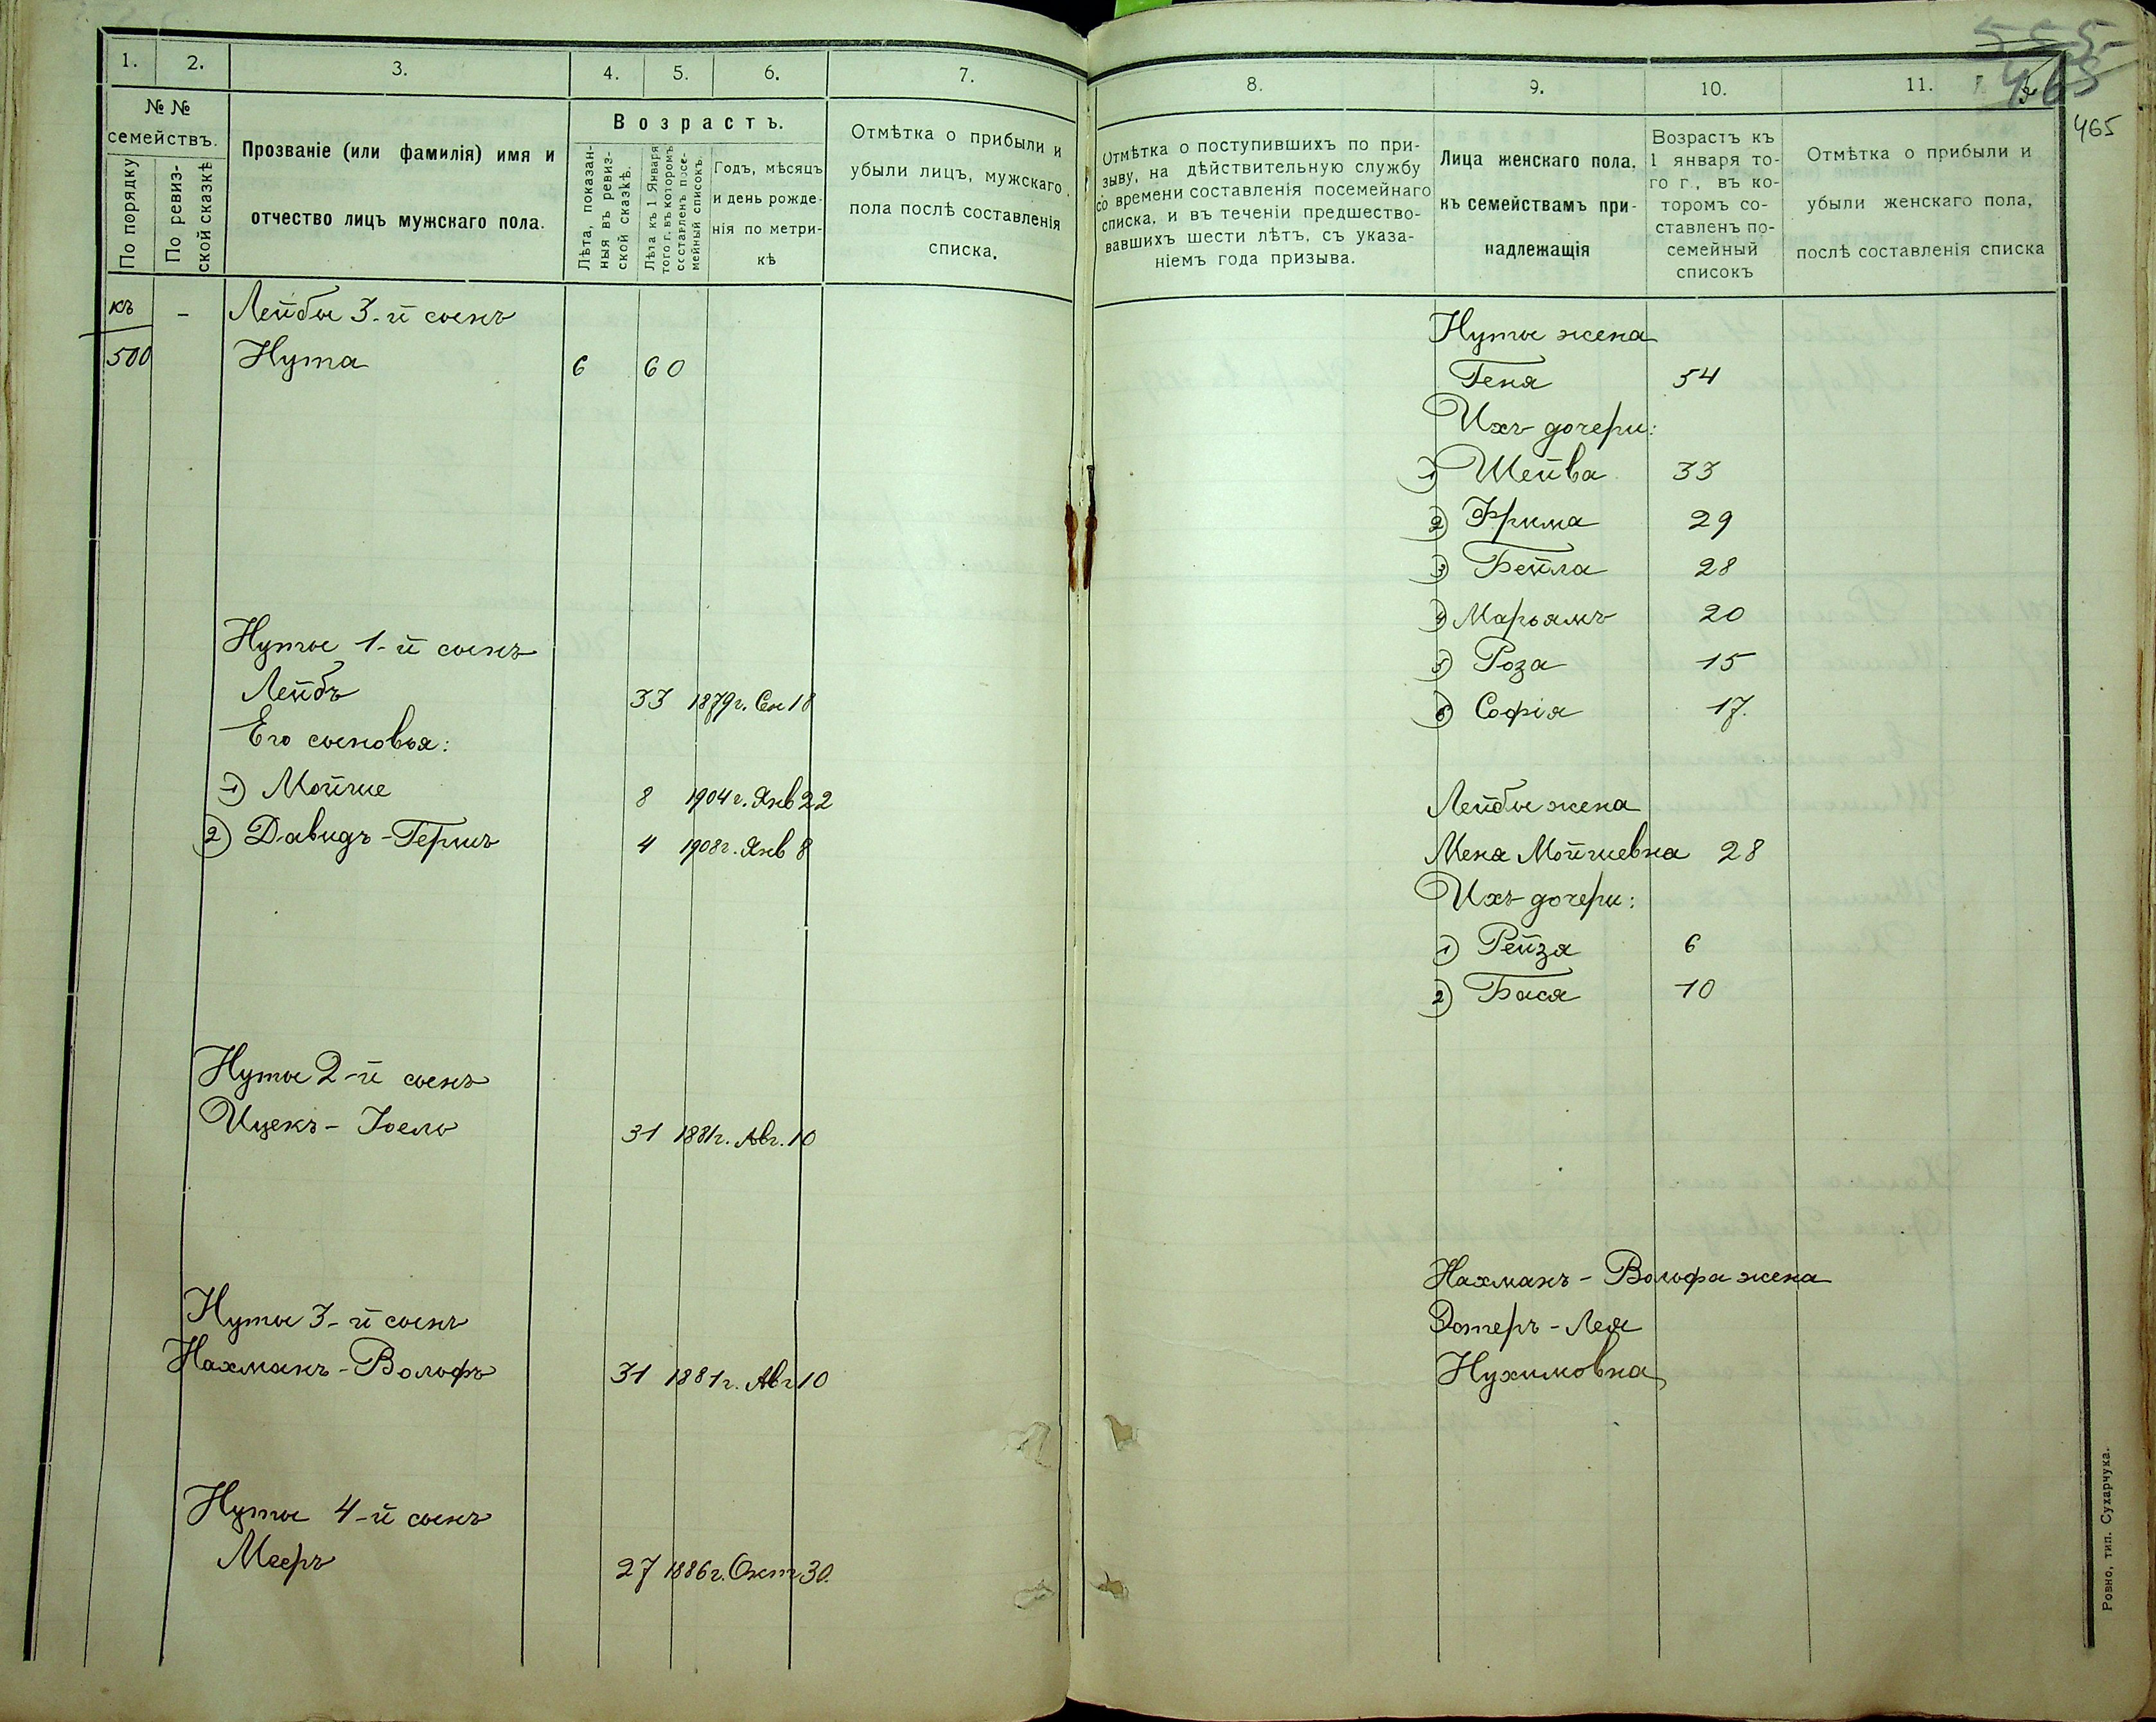 555
465
465
1.
2.
3.
4.
5.
6.
7.
№ №
семействъ.
По порядку
По ревиз-
ской сказкѣ
Прозваніе (или фамилія) имя и
отчество лицъ мужскаго пола.
Возрастъ.
Лѣта, показан-
ныя въ ревиз-
ской сказкѣ.
Лѣта къ 1 Января
того г. въ которомъ
составленъ посе-
мейный списокъ.
Годъ, мѣсяцъ
и день рожде-
нія по метри-
кѣ
Отмѣтка о прибыли и
убыли лицъ, мужскаго
пола послѣ составленія
списка.
къ - Лейбы 3-й сынъ
500 Нута 6 60
Нуты 1-й сынъ
Лейбъ 33 1879г. Сен 18
Его сыновья:
1) Мойше 8 1904г. Янв 22
2) Давидъ-Гершъ 4 1908г. Янв 8
Нуты 2-й сынъ
Ицекъ-Іоель 31 1881г. Авг. 10
Нуты 3-й сынъ
Нахманъ-Вольфъ 31 1881г. Авг 10
Нуты 4-й сынъ
Мееръ 27 1886г. Окт 30.
8.
9.
10.
11.
Отмѣтка о поступившихъ по при-
зыву, на дѣйствительную службу
со времени составленія посемейнаго
списка, и въ теченіи предшество-
вавшихъ шести лѣтъ, съ указа-
ніемъ года призыва.
Лица женскаго пола,
къ семействамъ при-
надлежащія
Возрастъ къ
1 января то-
го г., въ ко-
торомъ со-
ставленъ по-
семейный
списокъ
Отмѣтка о прибыли и
убыли женскаго пола,
послѣ составленія списка
Нуты жена
Геня 54
Ихъ дочери:
1) Шейва 33
2) Фрима 29
3) Бейла 28
4) Марьямъ 20
5) Роза 15
6) Софія 17.
Лейбы жена
Меня Мойшевна 28
Ихъ дочери:
1) Рейзя 6
2) Бася 10
Нахманъ-Вольфа жена
Эстеръ-Лея
Нухимовна
Ровно, тип. Сухарчука.